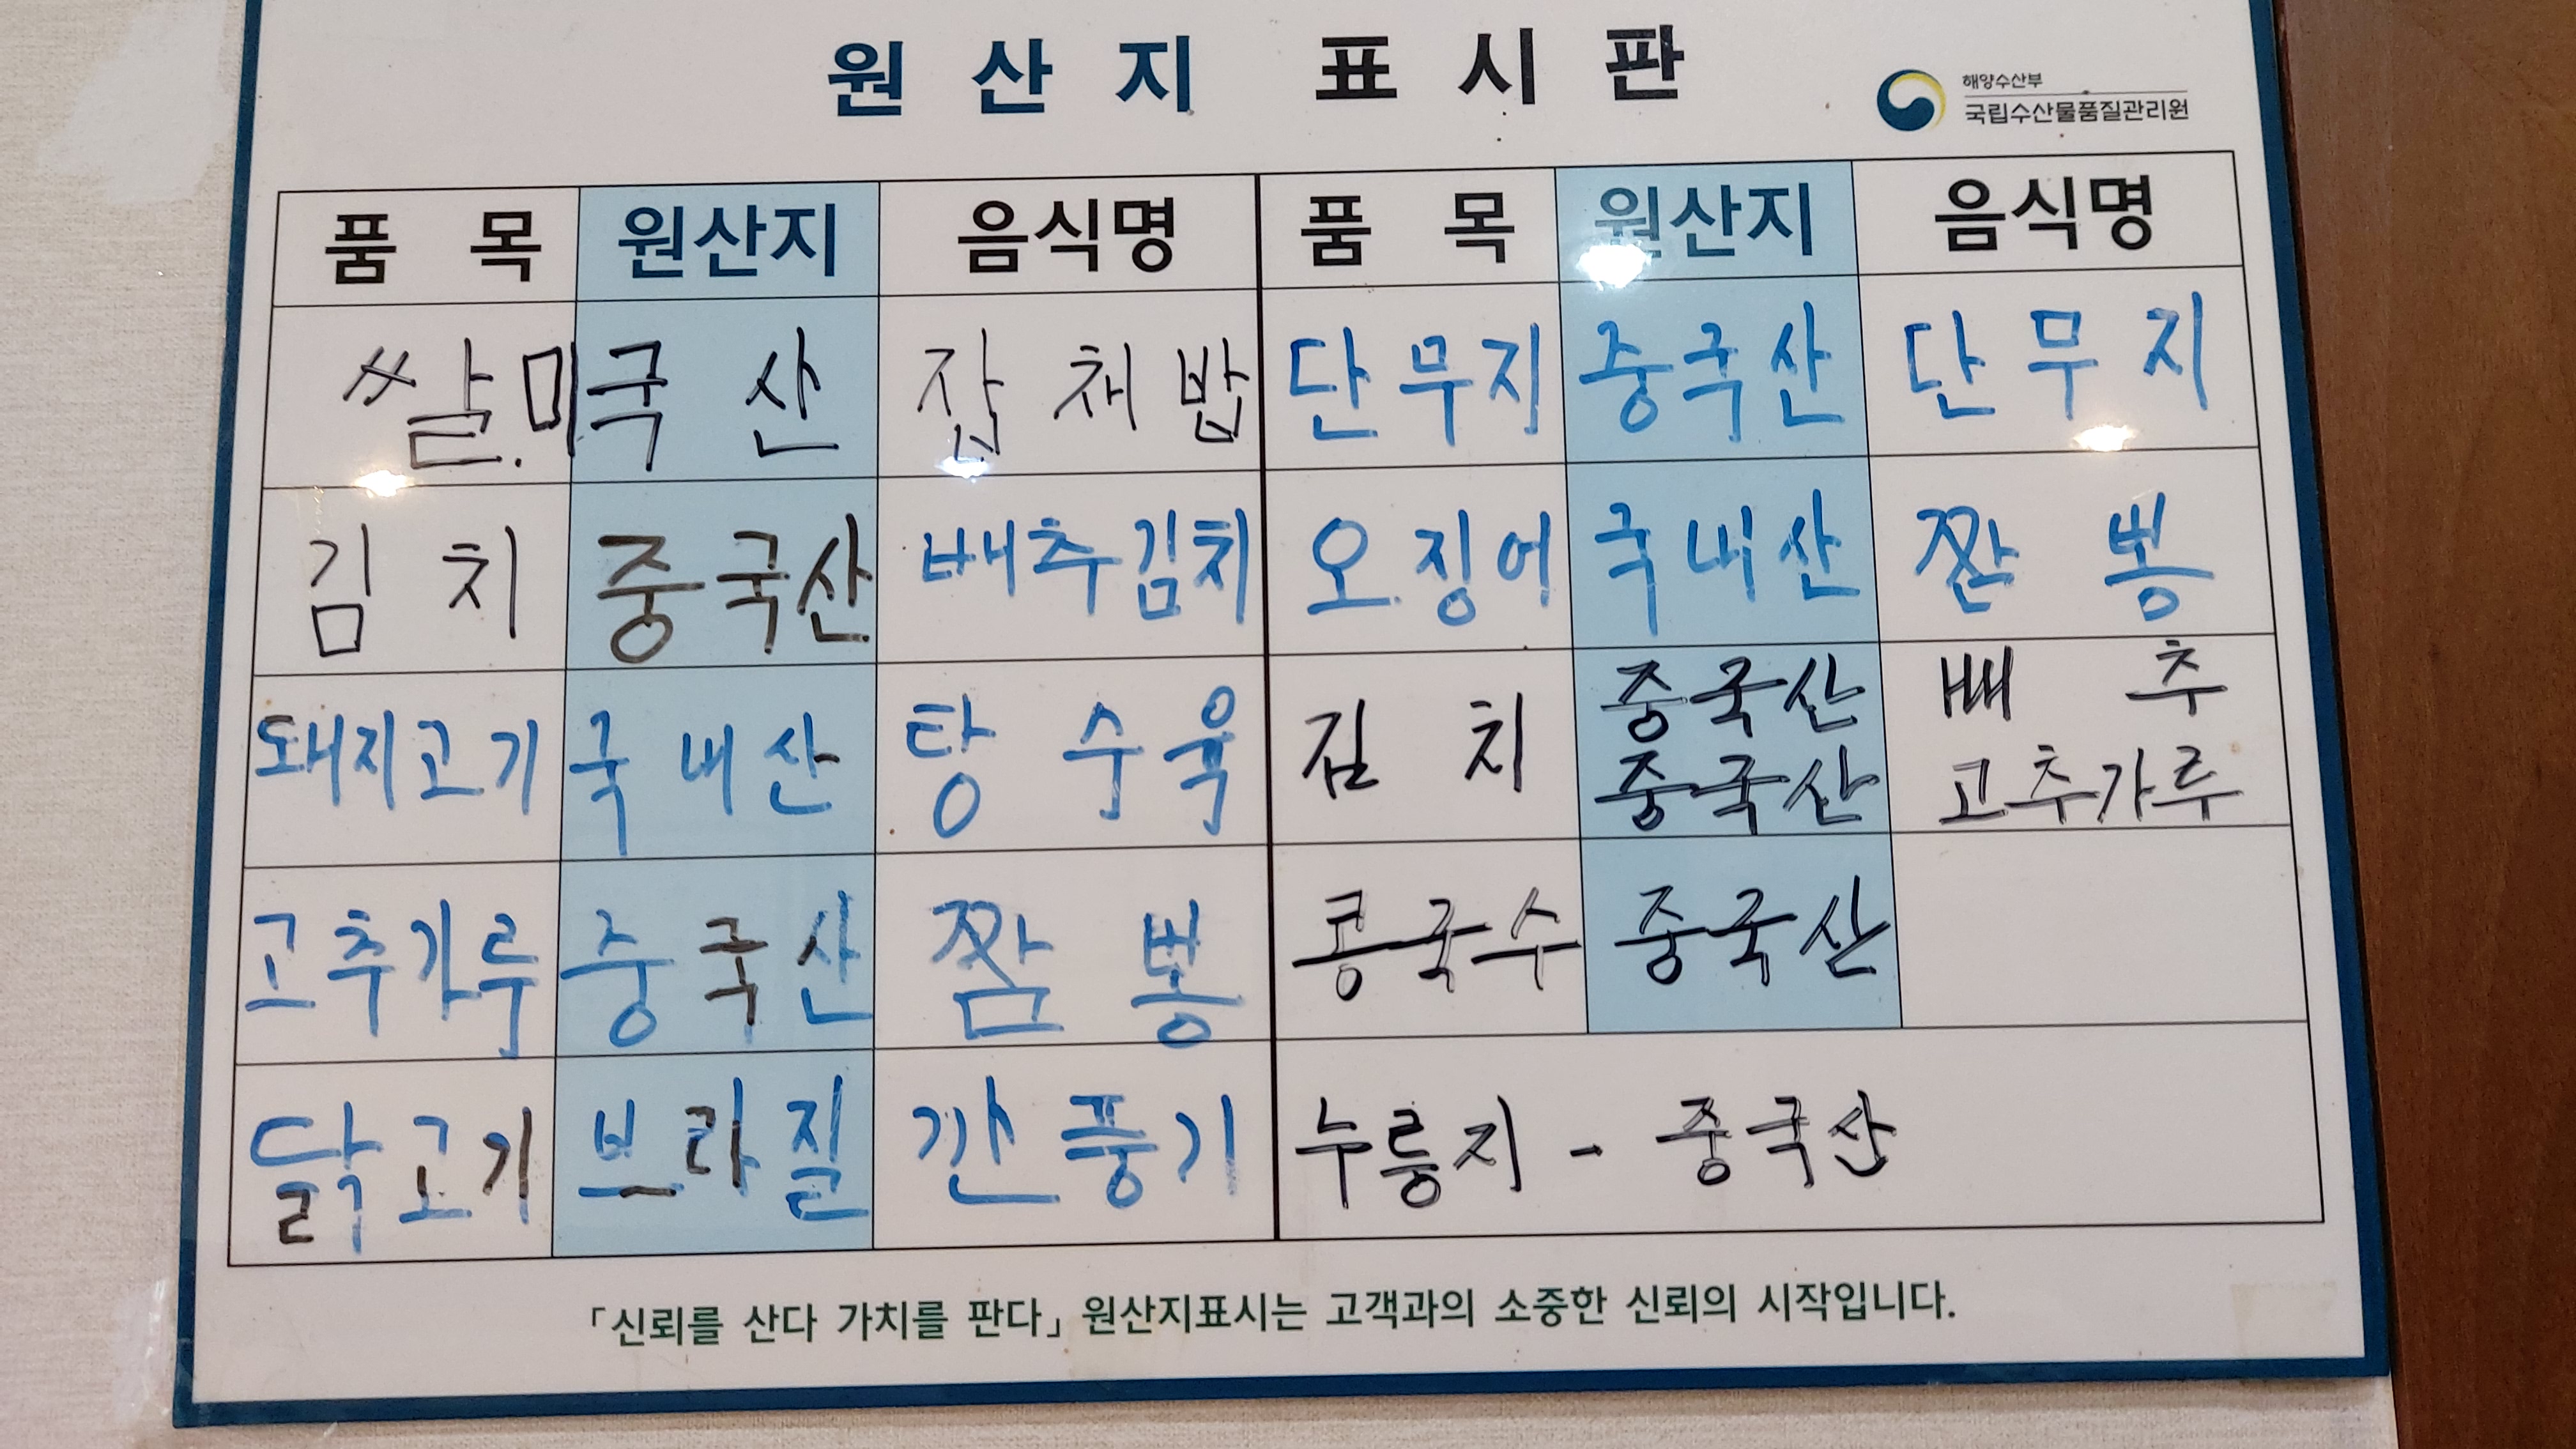 원 산 지 표 시 판
해양수산부
국립수산물품질관리원
품 목 원산지 음식명 품 목 원산지 음식명
쌀.미국 산 잡 채 밥 단무지 중국산 단 무 지
김 치 중국산 배추김치 오징어 국내산 짠 뽕
돼지고기 국내산 탕 수 육 김 치 중국산 배 추
중국산 고추가루
고추가루 중국산 짬 뽕 콩국수 중국산
닭고기 브라질 깐풍기 누룽지 - 중국산
「신뢰를 산다 가치를 판다」 원산지표시는 고객과의 소중한 신뢰의 시작입니다.